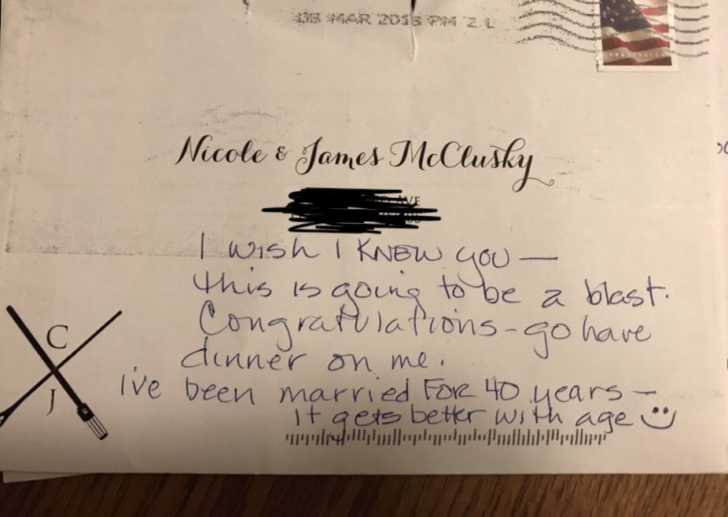 MAR 2018 PM 2 L
Nicole & James McClusky
AVE
I wish I KNEW you —
this is going to be a blast.
Congratulations - go have
dinner on me.
I've been married FOR 40 years —
it gets better with age
C
J